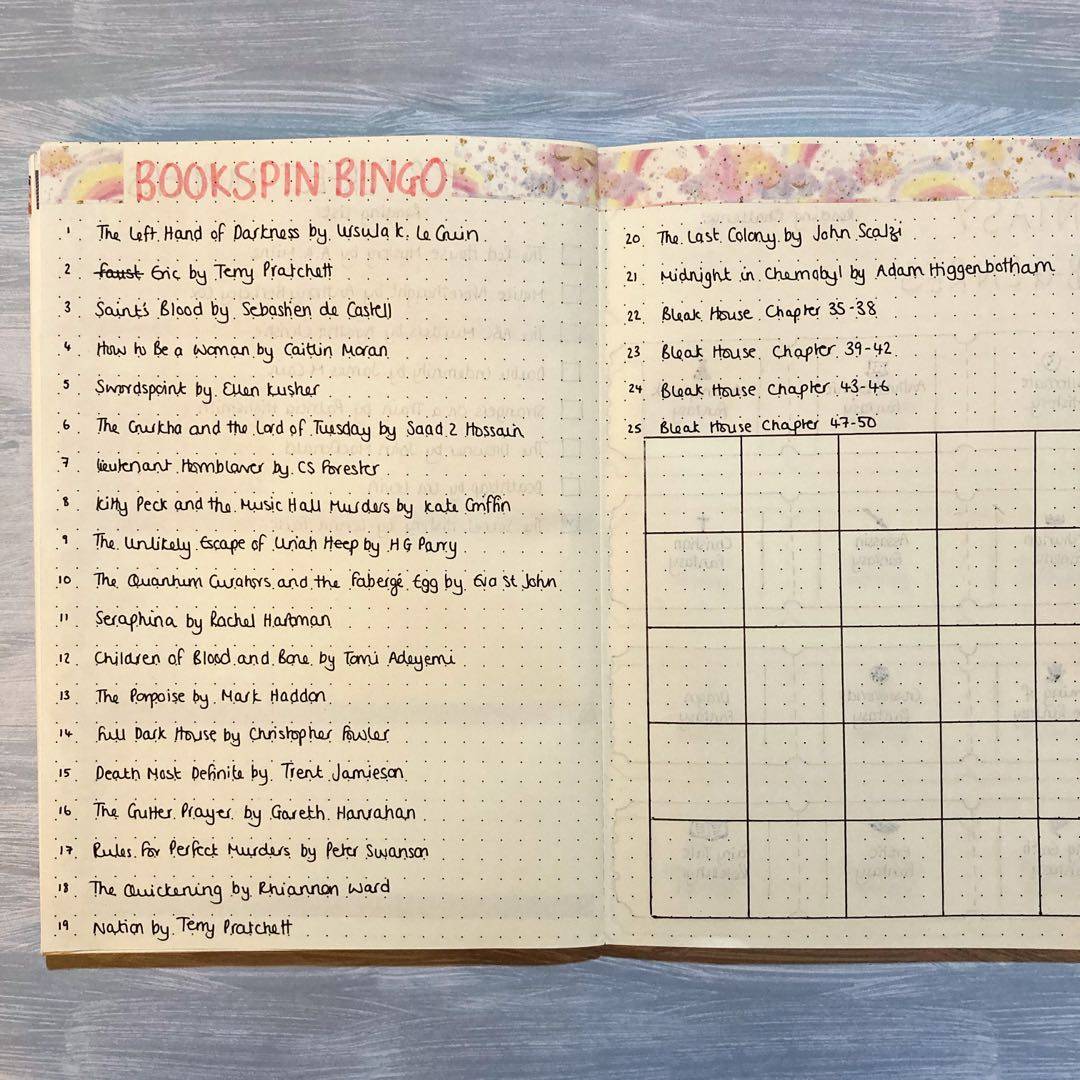 BOOKSPIN BINGO
1 The Left Hand of Darkness by Ursula K. Le Guin
2 ~~faust~~ Eric by Terry Pratchett
3 Saint's Blood by Sebastien de Castell
4 How to Be a Woman by Caitlin Moran
5 Swordspoint by Ellen Kusher
6 The Gurkha and the Lord of Tuesday by Saad Z Hossain
7 Lieutenant Hornblower by CS Forester
8 Kitty Peck and the Music Hall Murders by Kate Griffin
9 The Unlikely Escape of Uriah Heep by HG Parry
10 The Quantum Curators and the Fabergé Egg by Eva St John
11 Seraphina by Rachel Hartman
12 Children of Blood and Bone by Tomi Adeyemi
13 The Porpoise by Mark Haddon
14 Full Dark House by Christopher Fowler
15 Death Most Definite by Trent Jamieson
16 The Gutter Prayer by Gareth Hanrahan
17 Rules for Perfect Murders by Peter Swanson
18 The Quickening by Rhiannon Ward
19 Nation by Terry Pratchett
20 The Last Colony by John Scalzi
21 Midnight in Chernobyl by Adam Higgenbotham
22 Bleak House Chapter 35-38
23 Bleak House Chapter 39-42
24 Bleak House Chapter 43-46
25 Bleak House Chapter 47-50